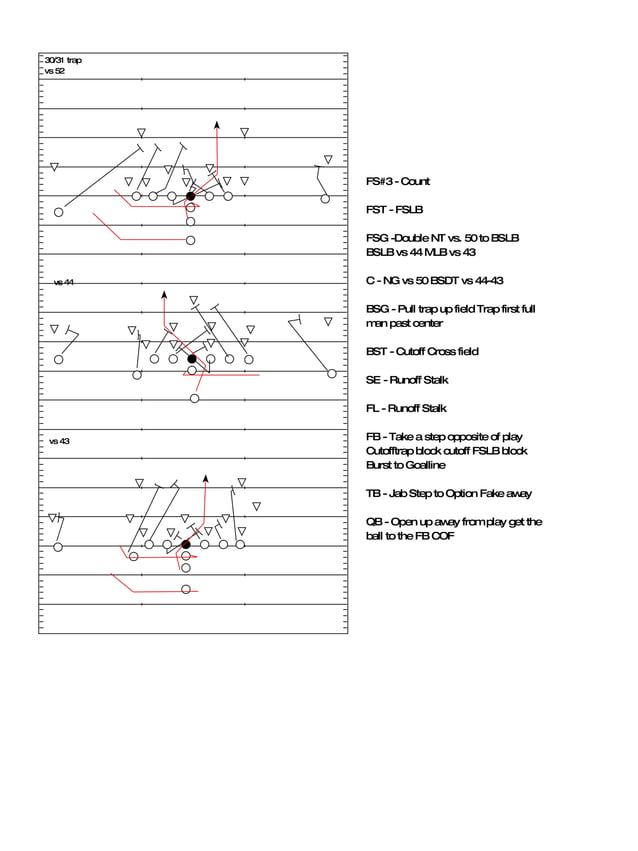 30/31 trap
vs 52
FS#3 - Count
FST - FSLB
FSG -Double NT vs. 50 to BSLB
BSLB vs 44 MLB vs 43
C - NG vs 50 BSDT vs 44-43
vs 44
BSG - Pull trap up field Trap first full
man past center
BST - Cutoff Cross field
SE - Runoff Stalk
FL - Runoff Stalk
FB - Take a step opposite of play
Cutofftrap block cutoff FSLB block
Burst to Goalline
vs 43
TB - Jab Step to Option Fake away
QB - Open up away from play get the
ball to the FB COF